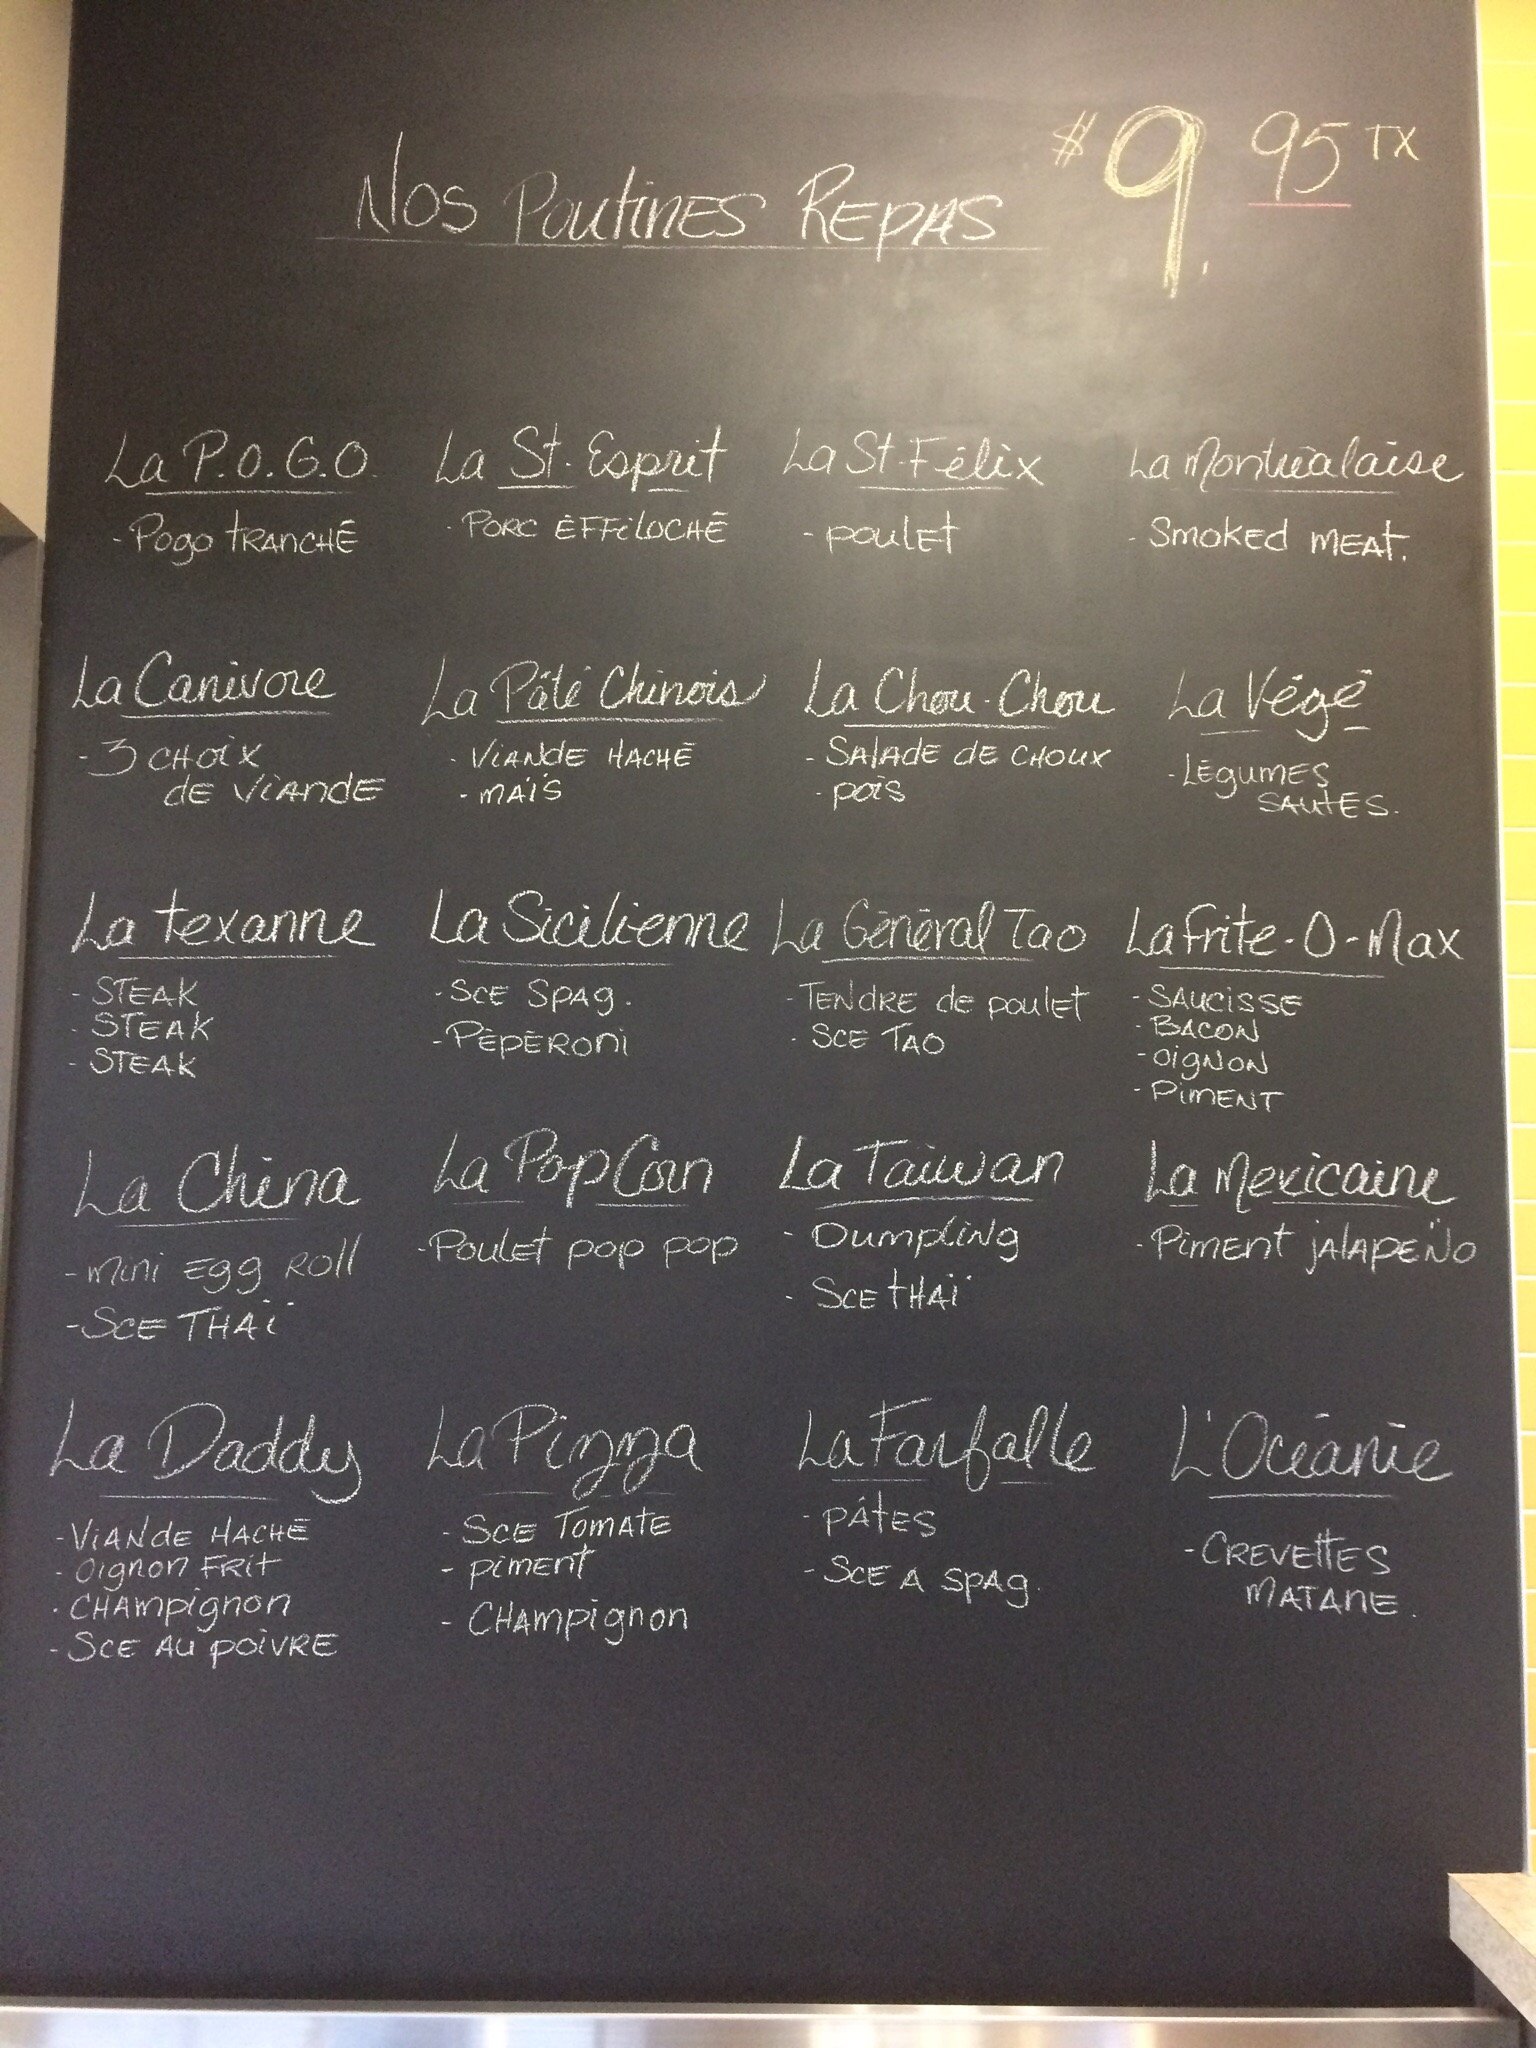 Nos Poutines Repas $9.95 TX
La P.O.G.O
- Pogo tranché
La St-Esprit
- Porc éffiloché
La St-Félix
- poulet
La Montréalaise
- Smoked meat.
La Canivore
- 3 choix
de viande
La Pâté Chinois
- Viande haché
- maïs
La Chou-Chou
- Salade de choux
- pois
La Végé
- Légumes
sautés.
La texanne
- Steak
- Steak
- Steak
La Sicilienne
- Sce Spag.
- Pépéroni
La Général Tao
- Tendre de poulet
- Sce Tao
La Frite-O-Max
- Saucisse
- Bacon
- oignon
- Piment
La China
- mini egg roll
- Sce Thaï
La PopCorn
- Poulet pop pop
La Taïwan
- Dumpling
- Sce thaï
La Mexicaine
- Piment jalapeño
La Daddy
- Viande haché
- oignon frit
- Champignon
- Sce au poivre
La Pizza
- Sce Tomate
- piment
- Champignon
La Farfalle
- pâtes
- Sce a spag.
L'Océanie
- Crevettes
matane.